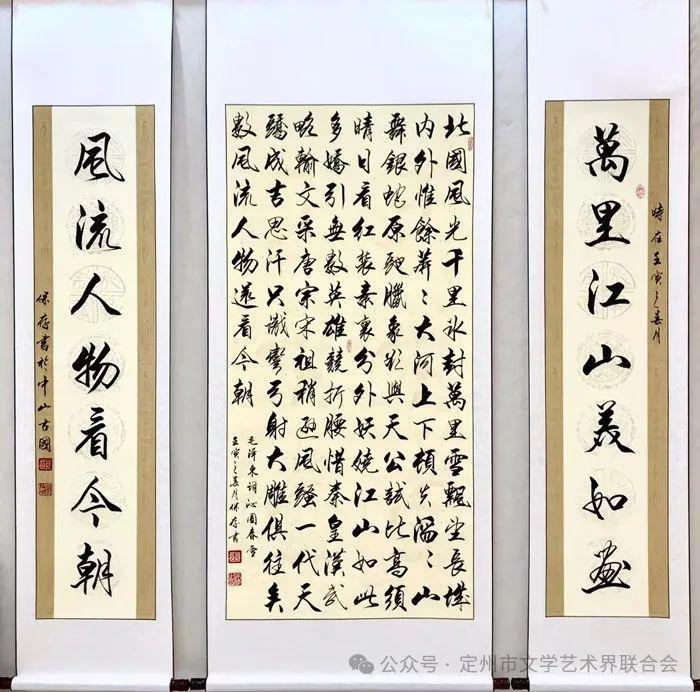 萬里江山美如畫
時在壬寅之春月
北國風光千里冰封萬里雪飄望長城
內外惟餘莽〻大河上下頓失滔〻山
舞銀蛇原馳臘象欲與天公試比高須
晴日看紅裝素裹兮外妖嬈江山如此
多嬌引無數英雄競折腰惜秦皇漢武
略輸文采唐宗宋祖稍遜風騷一代天
驕成吉思汗只識彎弓射大雕俱往矣
數風流人物還看今朝
毛澤東詞沁園春雪
壬寅之春月保存書
風流人物看今朝
保存書於中山古國
公众号·定州市文学艺术界联合会